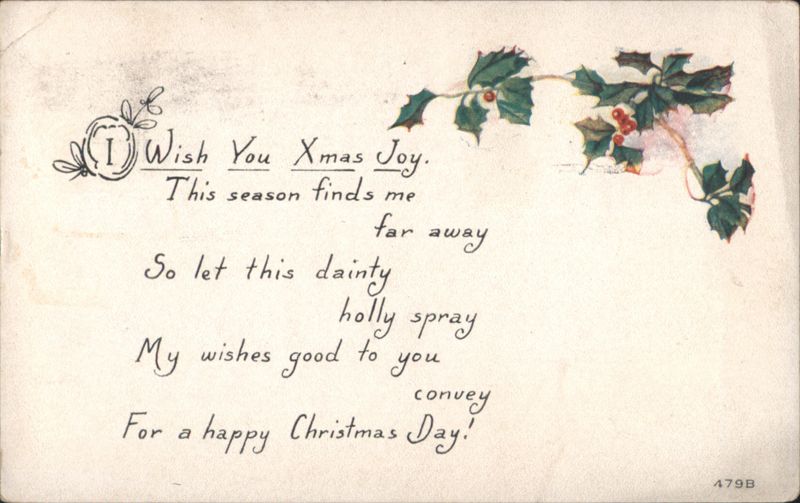 I Wish You Xmas Joy.
This season finds me
far away
So let this dainty
holly spray
My wishes good to you
convey
For a happy Christmas Day!
479B